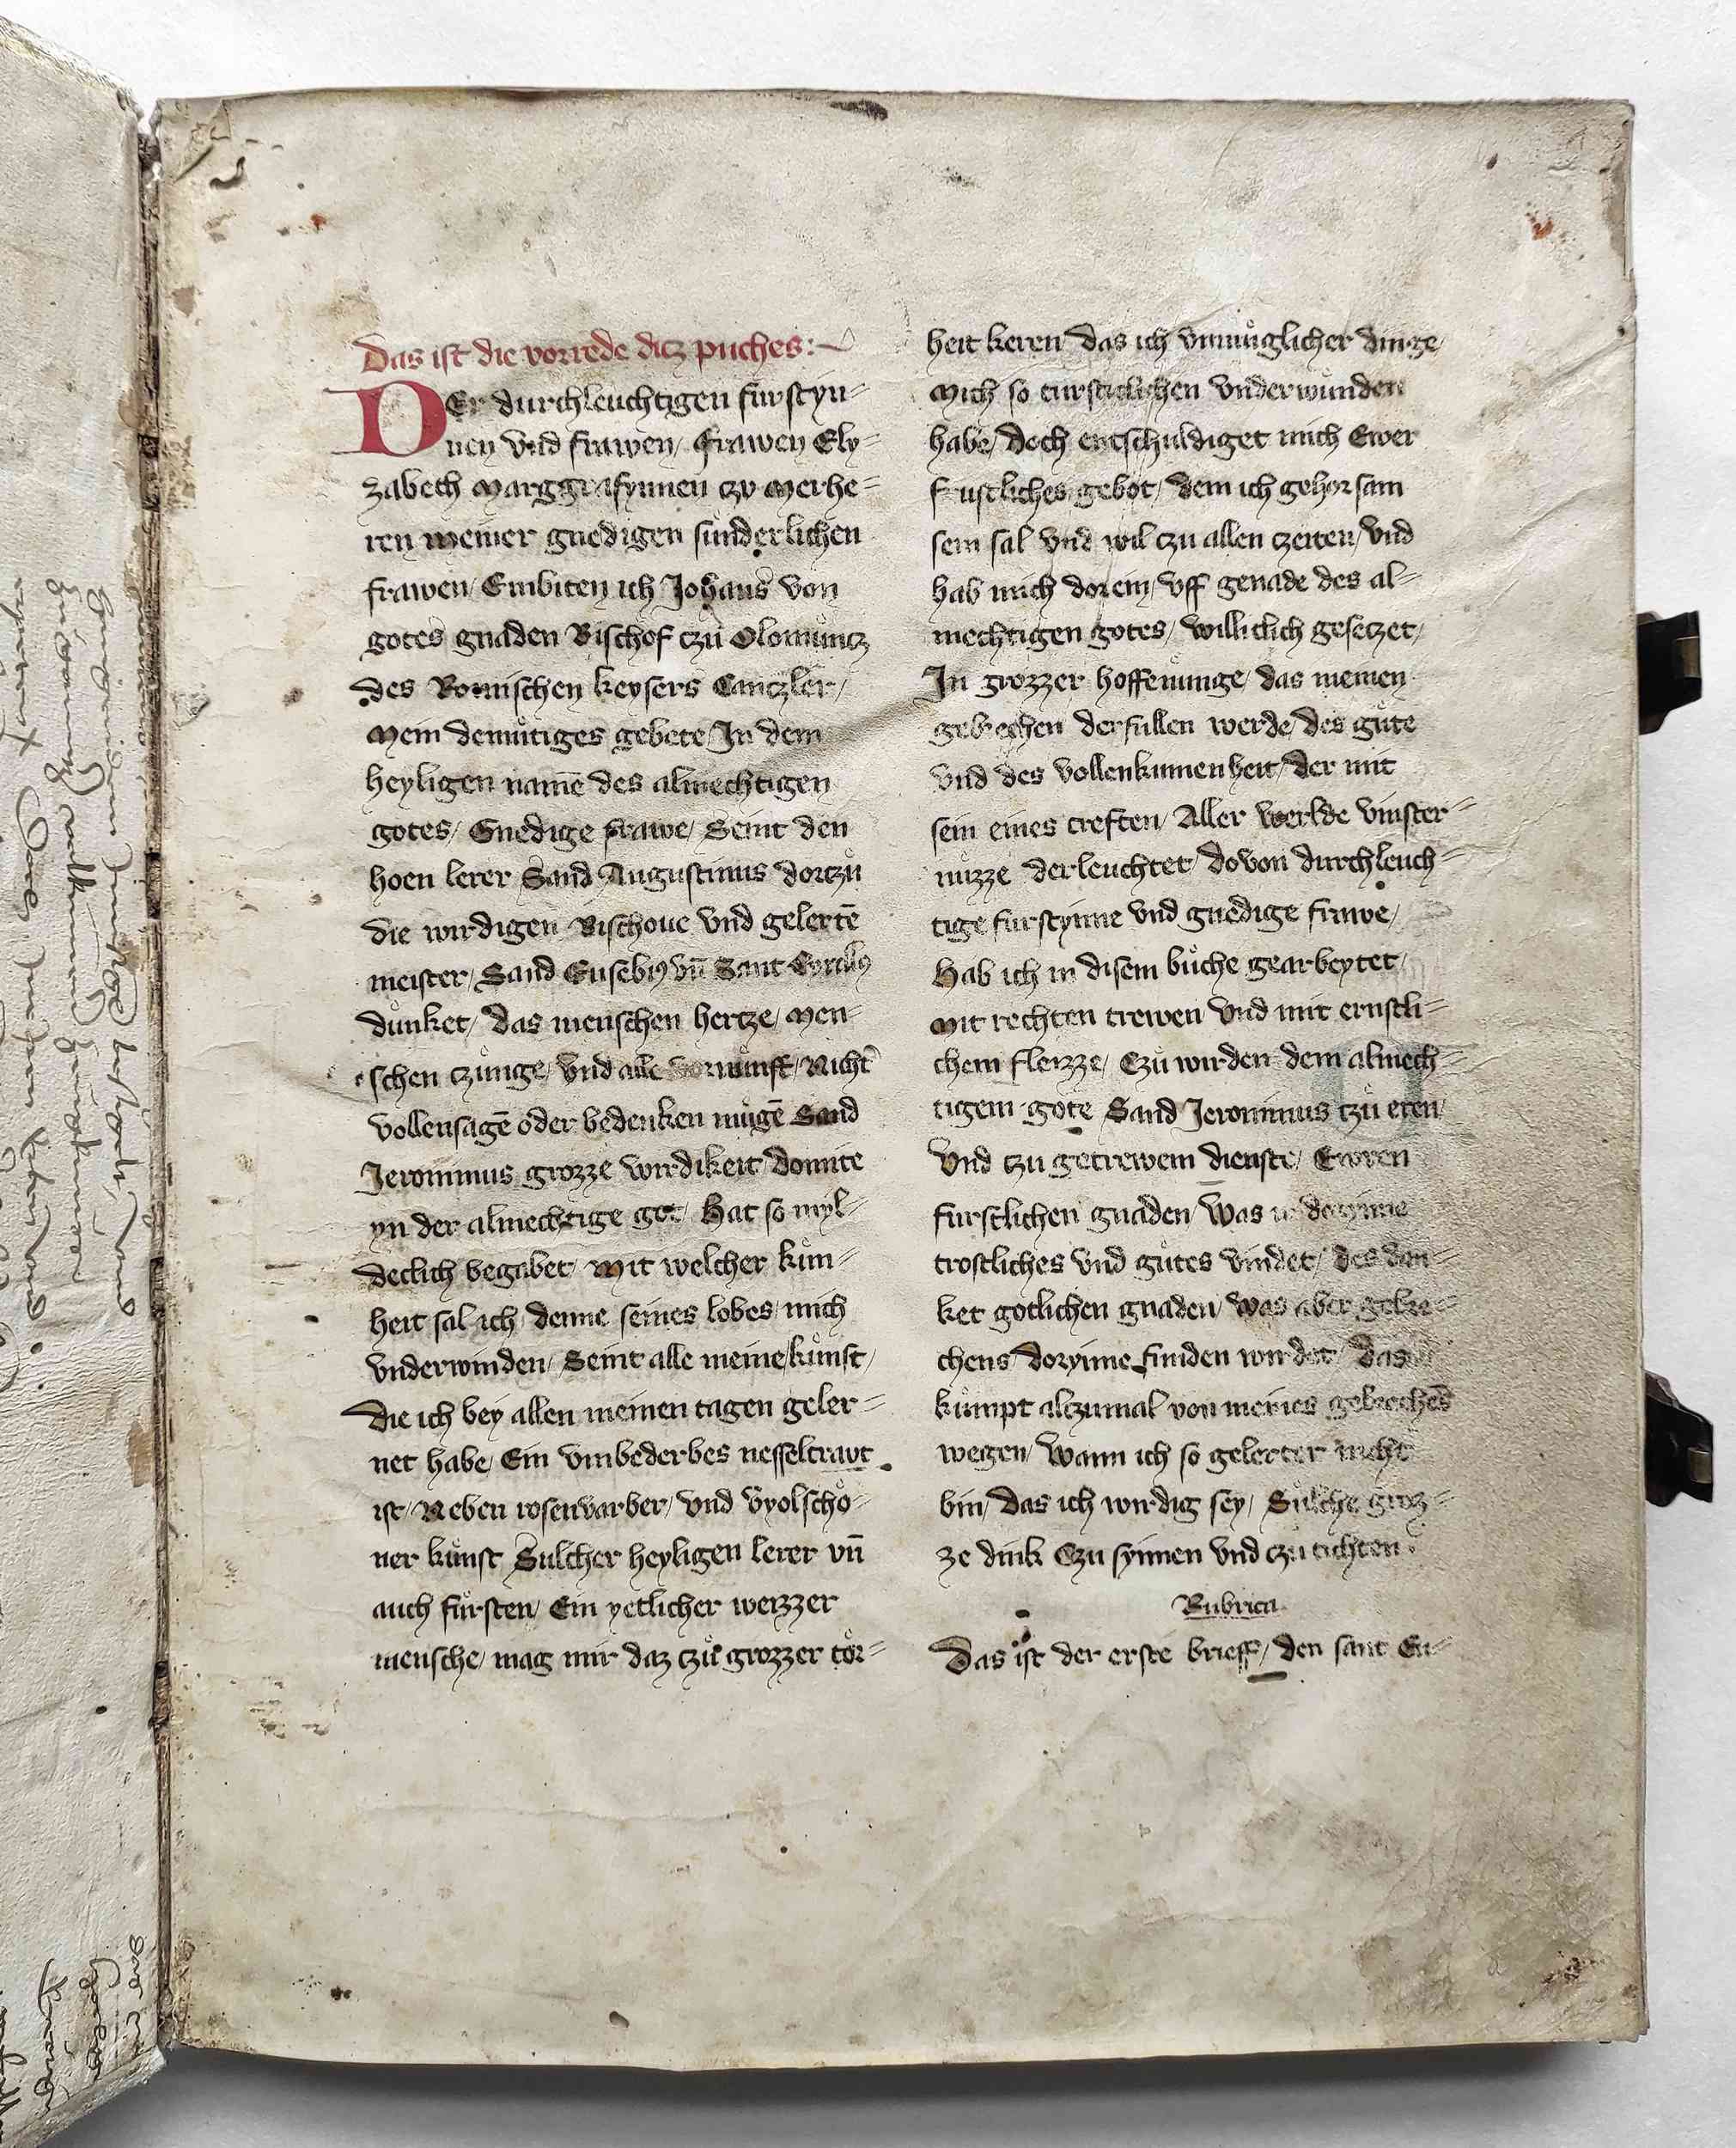 Das ist die vorrede ditz puches:
DEr durchleuchtigen furstyn=
nen vnd frawen/ frawen Ely=
zabeth Marggrafynnen czv Merhe=
ren meiner gnedigen sunderlichen
frawen/ Embiten ich Johans von
gotes gnaden Bischof tzů Olomůntz
des Romischen keysers Cantzler/
Mein demůtiges gebete/ In dem
heyligen namē des almechtigen
gotes/ Gnedige frawe/ Seint den
hoen lerer Sand Augustinus dortzů
die wirdigen Bischoue vnd gelertē
meister/ Sand Eusebiꝰ vn̄ Sant Cyrillꝰ
důnket/ das menschen hertze/ Men=
schen czunge/ vnd alle vornůnft/ Nicht
vollensagē oder bedenken mugē Sand
Jeronimus grozze wirdikeit/ domite
yn der almechtige got/ Hat so myl=
declich begabet/ Mit welcher kůn=
heit sal ich denne seines lobes mich
vnderwinden/ Seint alle meine kůnst/
die ich bey allen meinen tagen geler=
net habe/ Ein vnbederbes nesselcravt
ist/ Neben rosenvarber/ vnd vyolschö=
ner kůnst Sulcher heyligen lerer vn̄
auch fůrsten/ Ein yetlicher weizzer
mensche/ mag mir daz tzů grozzer tör=
heit keren das ich vnmůglicher dinge/
Mich so tursticlichen vnderwunden
habe/ doch entschuldiget mich Ewer
furstliches gebot/ dem ich gehorsam
sein sal vnd wil czu allen czeiten/ vnd
hab mich dorein/ vff genade des al=
mechtigen gotes/ williclich gesetzet/
In grozzer hoffenůnge/ das meinen
gebrechen derfullen werde/ des gůte
vnd des vollenkumenheit/ der mit
sein eines creften/ Aller werlde vinster=
nůzze derleuchtet/ dovon durchleuch=
tige furstynne vnd gnedige frawe/
Hab ich in disem bůche gearbeytet/
Mit rechten trewen vnd mit ernstli=
chem fleizze/ Czů wirden dem almech=
tigem gote Sand Jeronimus tzů eren/
Vnd czu getrewem dienste/ Ewren
furstlichen gnaden/ Was ir dorynne
trostliches vnd gůtes vindet/ des dan=
ket gotlichen gnaden/ was aber gebre=
chens dorynne funden wirdet/ das
kůmpt alczumal von meines gebrechēs
wegen/ Wann ich so gelerter nicht
bin/ das ich wirdig sey/ Sůlche groz=
ze dink Czu synnen vnd czu tichten.
Rubrica
Das ist der erste brieff/ den sant Eu=